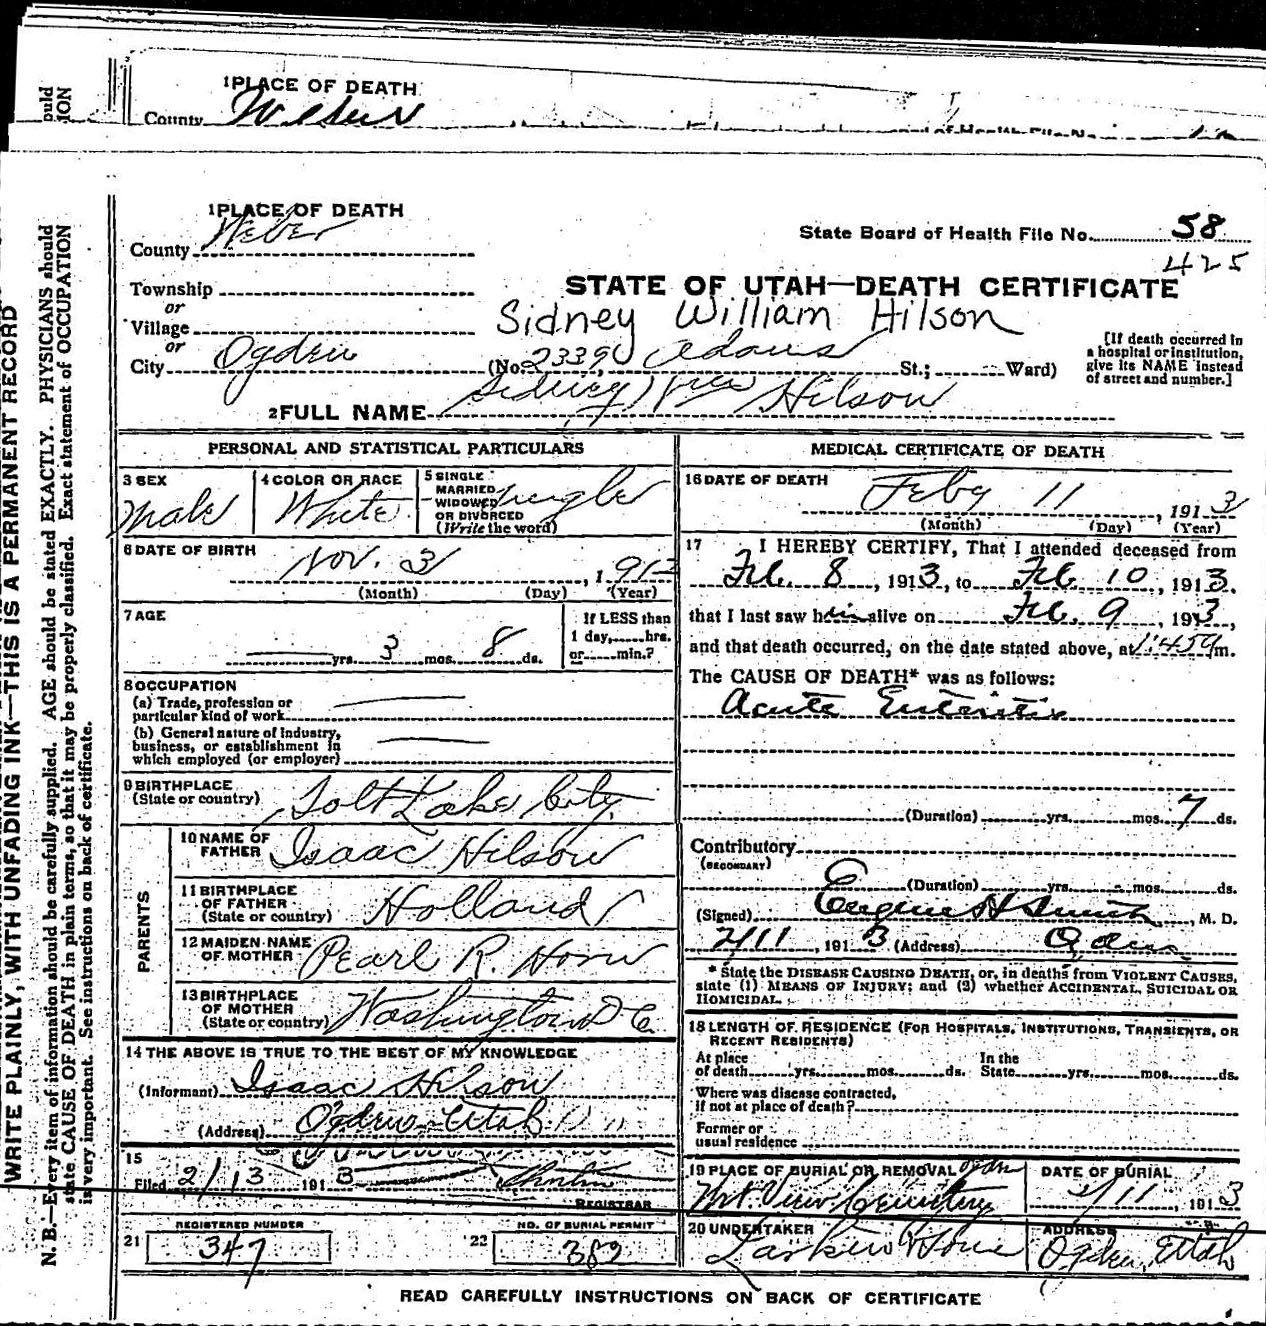 1 PLACE OF DEATH
County Weber
ould
ION
WRITE PLAINLY, WITH UNFADING INK—THIS IS A PERMANENT RECORD
N. B.—Every item of information should be carefully supplied. AGE should be stated EXACTLY. PHYSICIANS should
state CAUSE OF DEATH in plain terms, so that it may be properly classified. Exact statement of OCCUPATION
is very important. See instructions on back of certificate.
1 PLACE OF DEATH
County Weber
State Board of Health File No. 58
425
Township
or
Village
or
City Ogden
STATE OF UTAH—DEATH CERTIFICATE
Sidney William Hilson
(No. 2339 Adams St.; Ward)
[If death occurred in
a hospital or institution,
give its NAME instead
of street and number.]
2 FULL NAME Sidney Wm Hilson
PERSONAL AND STATISTICAL PARTICULARS
3 SEX
Male
4 COLOR OR RACE
White
5 SINGLE
MARRIED
WIDOWED
OR DIVORCED
(Write the word)
Single
6 DATE OF BIRTH
Nov. 3, 1912
(Month) (Day) (Year)
7 AGE
— yrs. 3 mos. 8 ds.
If LESS than
1 day, hrs.
or min.?
8 OCCUPATION
(a) Trade, profession or
particular kind of work
(b) General nature of industry,
business, or establishment in
which employed (or employer)
9 BIRTHPLACE
(State or country) Salt Lake City
PARENTS
10 NAME OF
FATHER Isaac Hilson
11 BIRTHPLACE
OF FATHER
(State or country) Holland
12 MAIDEN NAME
OF MOTHER Pearl R. Horn
13 BIRTHPLACE
OF MOTHER
(State or country) Washington D C
14 THE ABOVE IS TRUE TO THE BEST OF MY KNOWLEDGE
(Informant) Isaac Hilson
(Address) Ogden Utah
15
Filed 2/13 1913
REGISTRAR
REGISTERED NUMBER
21 347
NO. OF BURIAL PERMIT
22 382
MEDICAL CERTIFICATE OF DEATH
16 DATE OF DEATH
Feby 11, 1913
(Month) (Day) (Year)
17 I HEREBY CERTIFY, That I attended deceased from
Feb. 8, 1913, to Feb 10, 1913,
that I last saw him alive on Feb. 9, 1913,
and that death occurred, on the date stated above, at m.
The CAUSE OF DEATH* was as follows:
Acute Enteritis
(Duration) yrs. mos. 7 ds.
Contributory
(SECONDARY)
(Duration) yrs. mos. ds.
(Signed) Eugene H Smith, M. D.
2/11, 1913 (Address) Ogden
* State the DISEASE CAUSING DEATH, or, in deaths from VIOLENT CAUSES,
state (1) MEANS OF INJURY; and (2) whether ACCIDENTAL, SUICIDAL OR
HOMICIDAL.
18 LENGTH OF RESIDENCE (FOR HOSPITALS, INSTITUTIONS, TRANSIENTS, OR
RECENT RESIDENTS)
At place
of death yrs. mos. ds.
In the
State yrs. mos. ds.
Where was disease contracted,
if not at place of death?
Former or
usual residence
19 PLACE OF BURIAL OR REMOVAL Ogden
Mt. View Cemetery
DATE OF BURIAL
2/11, 1913
20 UNDERTAKER
Larkin
ADDRESS
Ogden, Utah
READ CAREFULLY INSTRUCTIONS ON BACK OF CERTIFICATE